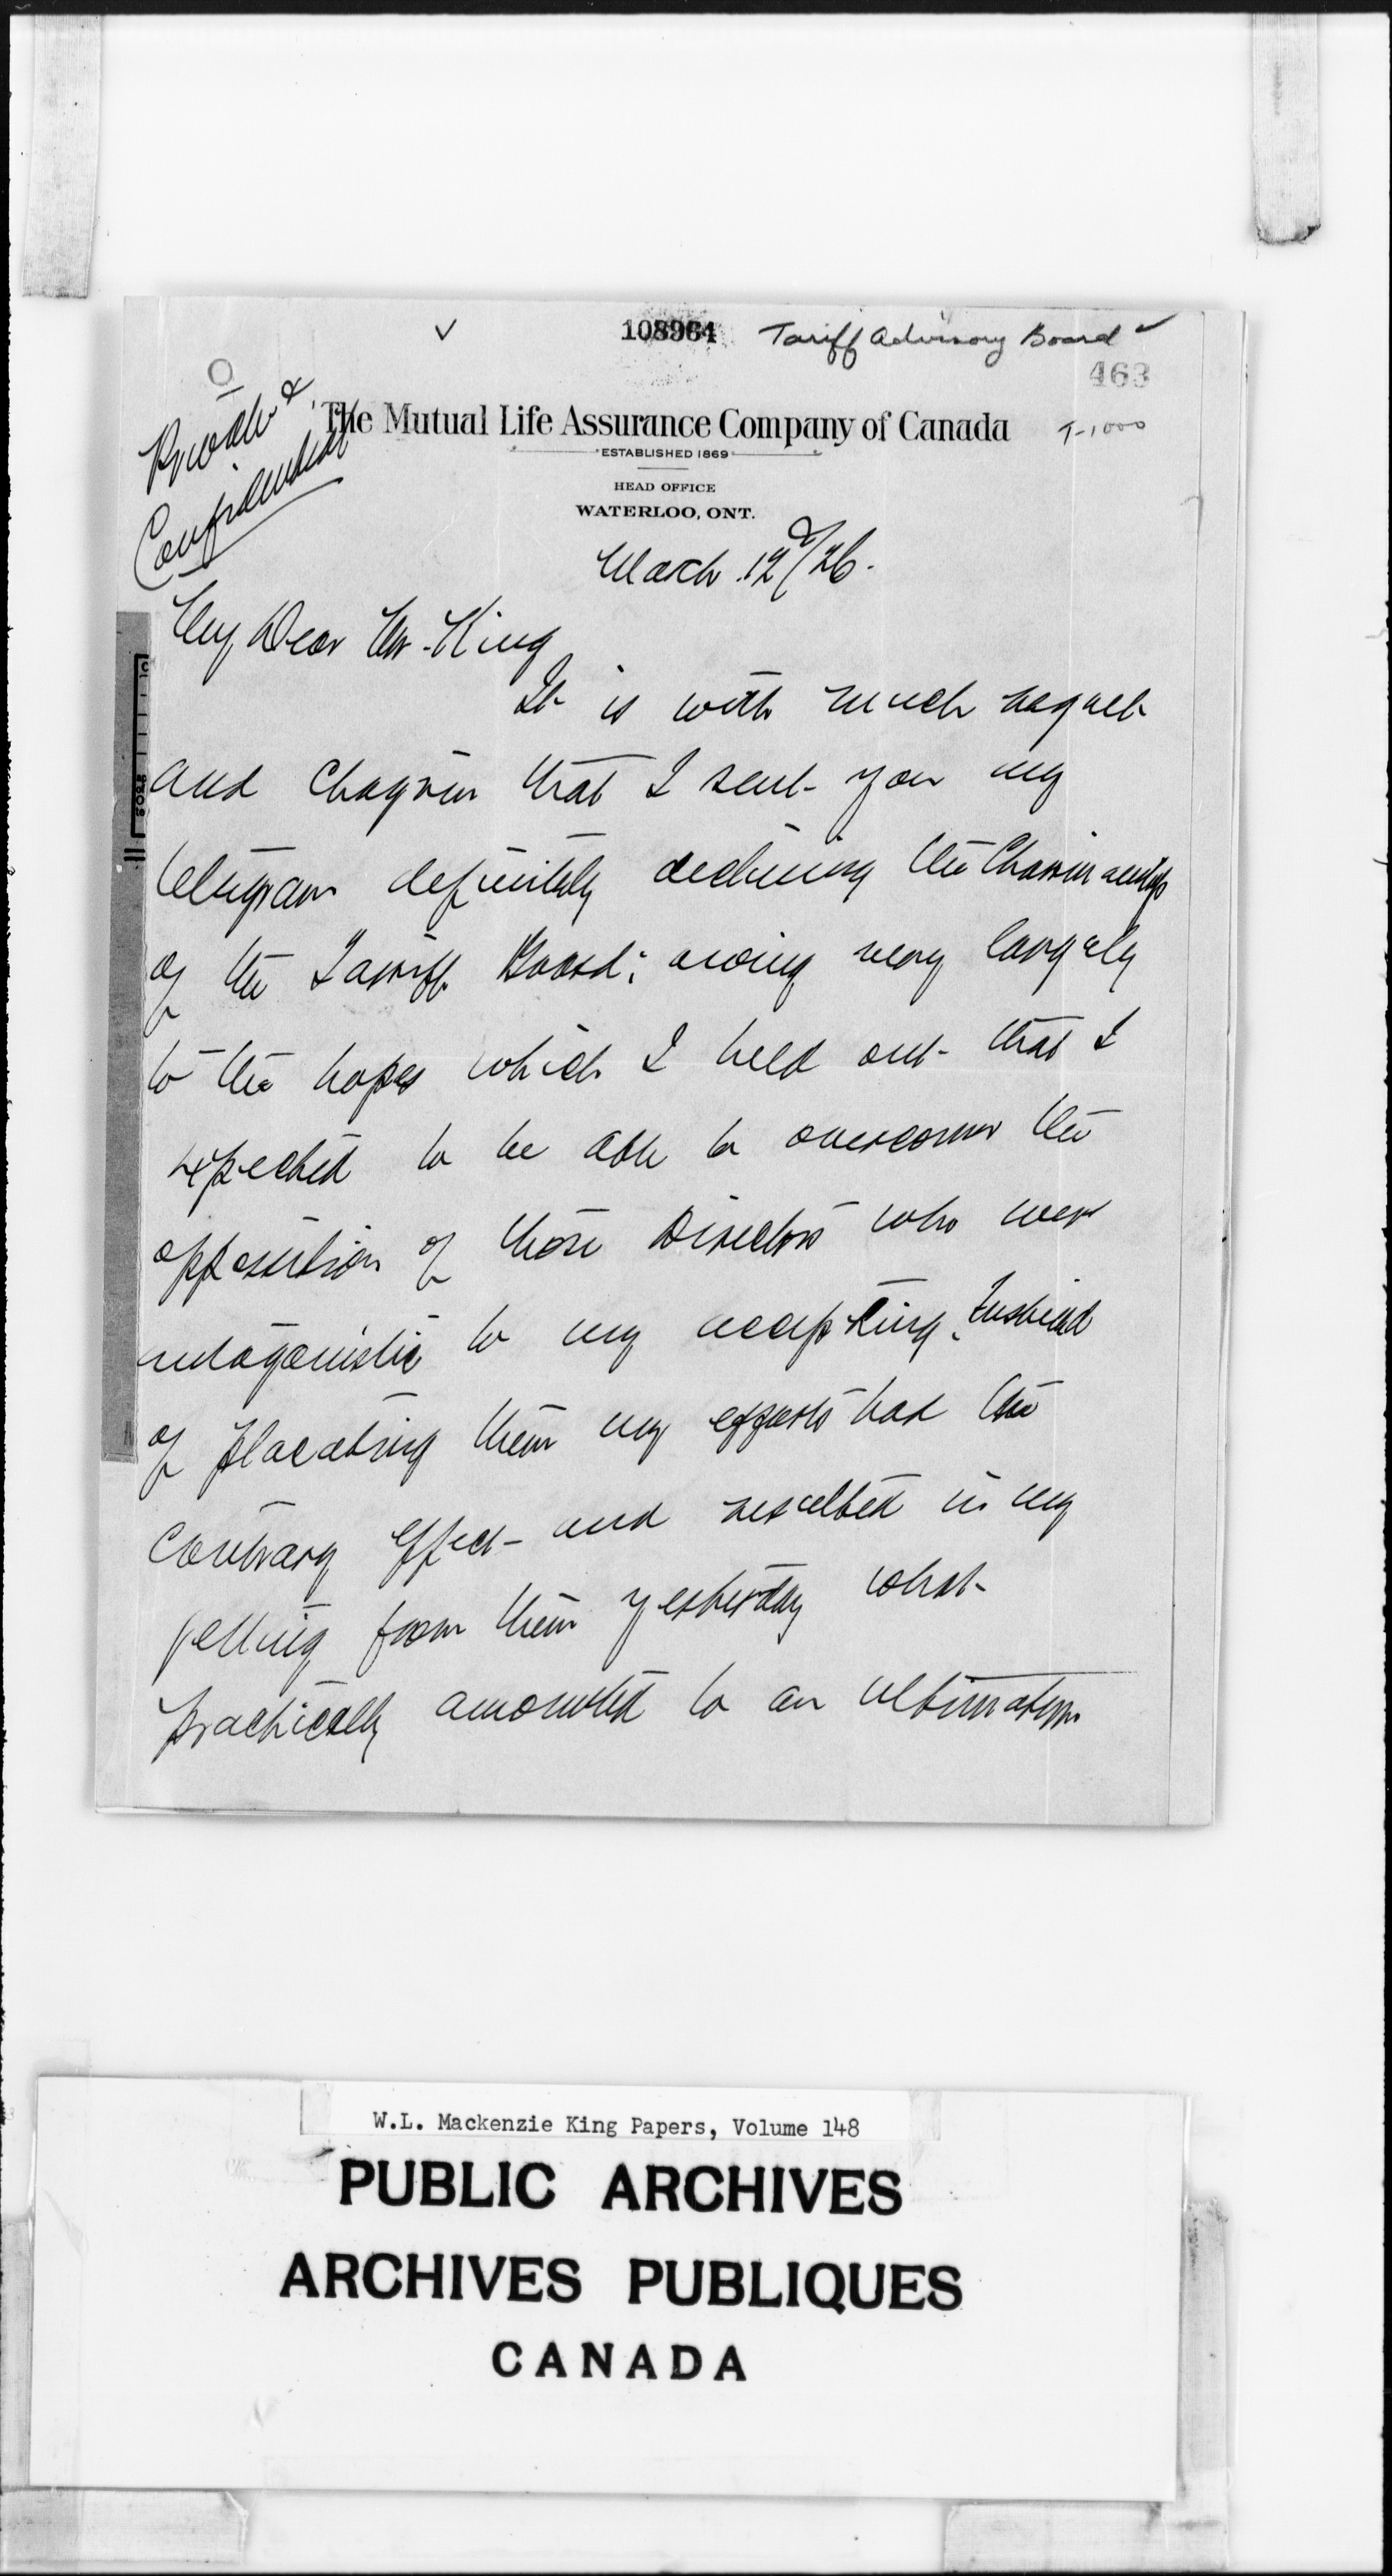 108964 Tariff Advisory Board
463
Private &
Confidential
The Mutual Life Assurance Company of Canada
T-1000
ESTABLISHED 1869
HEAD OFFICE
WATERLOO, ONT.
March 12/26.
My Dear Mr. King
It is with much regret
and chagrin that I sent you my
telegram definitely declining the Chairmanship
of the Tariff Board; owing very largely
to the hopes which I held out that I
expected to be able to overcome the
opposition of those Directors who were
antagonistic to my accepting. Instead
of placating them my efforts had the
contrary effect and resulted in my
getting from them yesterday what
practically amounted to an ultimatum
W.L. Mackenzie King Papers, Volume 148
PUBLIC ARCHIVES
ARCHIVES PUBLIQUES
CANADA